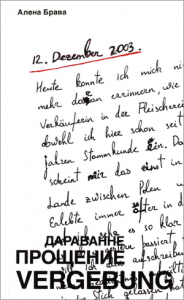 Алена Брава
12. Dezember 2003.
Heute konnte ich mich ni
mehr daran erinnern, wie
Verkäuferin in der Fleischerei
obwohl ich hier schon seit
Jahren Stammkunde bin. Da
scheint mir das einst in
Lande zwischen Polen u
Erlebte immer öfter in d
es so klar
passiert
ДАРАВАННЕ
ПРОЩЕНИЕ
VERGEBUNG